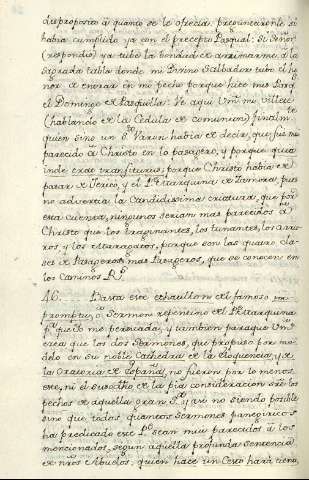 desproposito à quanto se le ofrecia: preguntaronle si
habia cumplido ya con el precepto Pasqual: Si Señor
(respondio) ya tube la bondad de arrimarme à la
sagrada tabla donde mi Divino Salbador tubo el ho
nor de entrar en mi pecho porque hice mis Pasq
el Domingo de Pasquilla: Ve aqui Vm mi villete
(hablando de la Cedula de comunion) finalm.te
quien sino un Varon habia de decir, que fue mui
parecido à Christo en lo pasagero, y porque quia
inde erat transiturus, porque Christo habia de
pasar de Jerico, y el P. Marquina de Zamora, pues
no advertia la Candidissima criatura, que por
esta cuenta, ningunos serian mas parecidos à
Christo que los tragmantes, los tunantes, los arrie
ros, y los Maragatos, porque son las quatro cla-
ses de Pasageros mas Pasageros, que se conocen en
los caminos R.s
46. Basta este echantillon del famoso
promptu, ò Sermon repentino del P. Marquina
p.a que Vm se persuada, y tambien paraque Vm
crea que los dos Sermones, que propuso por mo
delo en su noble Cathedra de la eloquencia, y de
la Oratoria de España, no fueron por lo menos
este, ni el suscitto de la pia consideracion sobre los
pechos de aquella gran P.a y asi no siendo posible
sino que todos quantos sermones panegiricos
ha predicado este P.e sean mui parecidos à los
mencionados, segun aquella profunda sentencia
de nros Abuelos, quien hace un Cesto hará tiene,